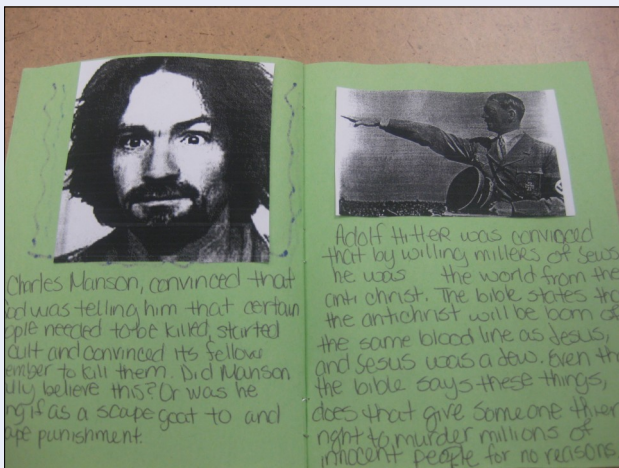 Charles Manson, convinced that
od was telling him that certain
ople needed to be killed, started
cult and convinced its fellow
ember to kill them. Did Manson
ully believe this? Or was he
ng if as a scape goat to and
ape punishment.
Adolf Hitler was convinced
that by willing millers of Jews
he was the world from the
anti christ. The bible states tha
the antichrist will be born of
the same blood line as Jesus,
and Jesus was a Jew. Even th
the bible says these things,
does that give someone thier
right to murder millions of
innocent people for no reasons